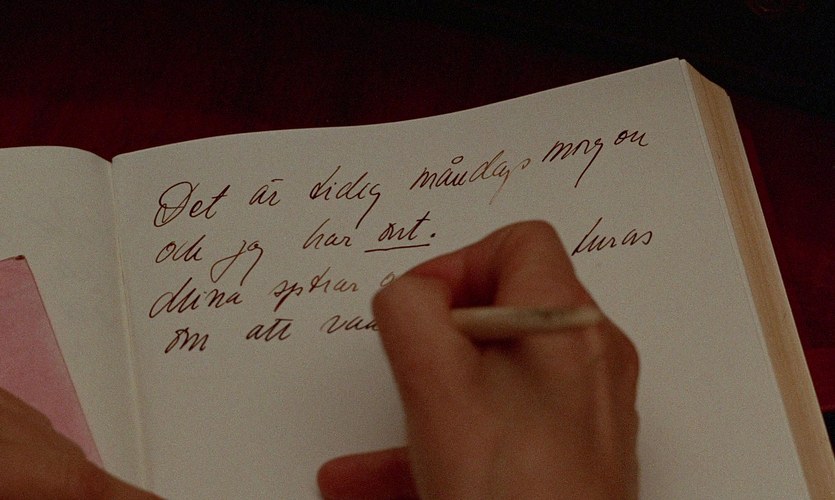 Det är tidig måndags morgon
och jag har ont. turas
mina systrar
om att vaa